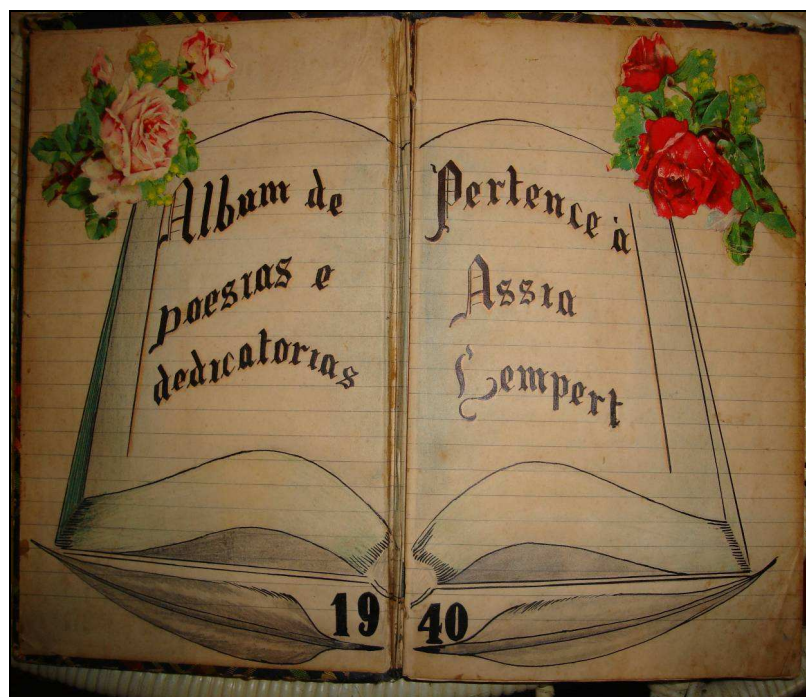 Album de
poesias e
dedicatorias
Pertence à
Assia
Lempert
1940